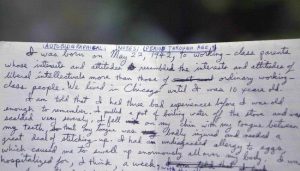 (AUTOBIOGRAPHICAL NOTES, PERIOD THROUGH AGE
I was born on May 22, 1942, to working-class parents
whose interests and attitudes resembled the interests and attitudes of
liberal intellectuals more than those of ordinary working-
class people. We lived in Chicago until I was 10 years old.
I am told that I had three bad experiences before I was old
enough to remember. I a pot of boiling water off the stove and was
scalded very severely, I fell on my chin with my tongue between
my teeth, so that my tongue was badly injured and needed a
great deal of stitching up. I had an undiagnosed allergy to eggs,
which caused me to swell up enormously all over my body. I was
hospitalized for, I think, a week,